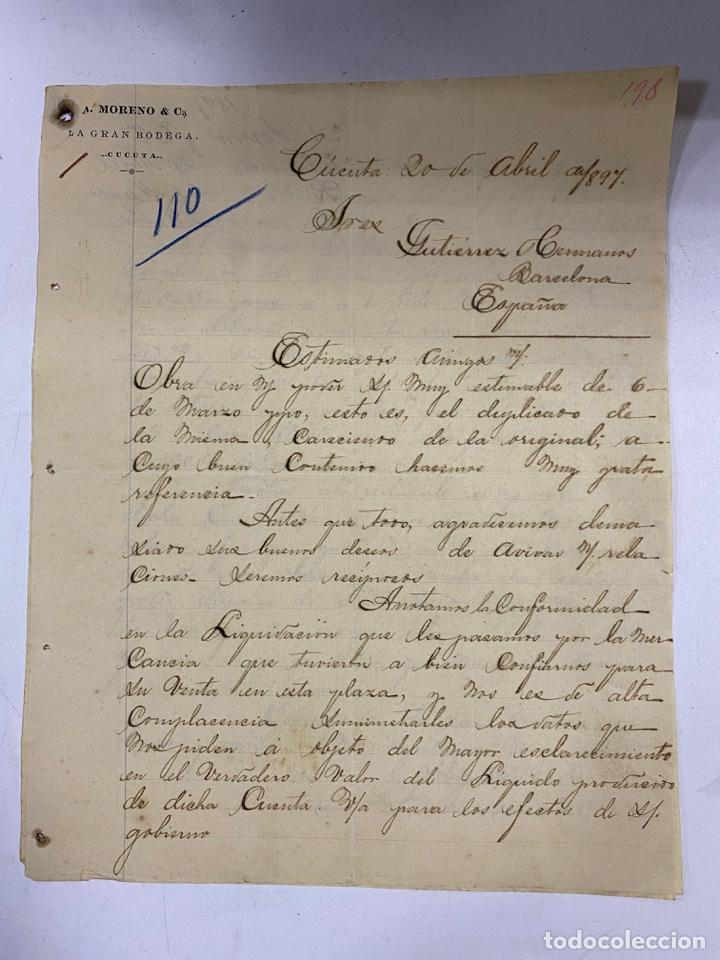 A. MORENO & Ca.
LA GRAN BODEGA.
CUCUTA
198
110
Cúcuta 20 de Abril 1897.
Sres
Gutiérrez Hermanos
Barcelona
España
Estimados amigos n/.
Obra en n/ poder s/. muy estimable de 6
de Marzo ppo, esto es, el duplicado de
la misma, careciendo de la original; a
cuyo buen contenido hacemos muy grata
referencia.
Antes que todo, agradecemos dema
siado sus buenos deseos de avivar n/. rela
ciones. Seremos recíprocos
Anotamos la conformidad
en la Liquidación que les pasamos por la mer
cancia que tuvieron a bien confiarnos para
su venta en esta plaza, y nos es de alta
complacencia suministrarles los datos que
nos piden á objeto del mayor esclarecimiento
en el verdadero valor del Líquido producido
de dicha cuenta. para los efectos de s/.
gobierno
todocoleccion
todocoleccion.net